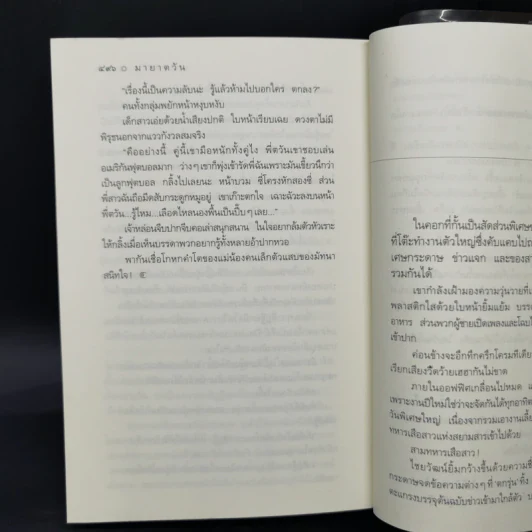 ๔๙๖ ○ มายาตวัน
"เรื่องนี้เป็นความลับนะ รู้แล้วห้ามไปบอกใคร ตกลง?"
คนทั้งกลุ่มพยักหน้าหงุบหงับ
เด็กสาวเอ่ยด้วยน้ำเสียงปกติ ใบหน้าเรียบเฉย ดวงตาไม่มี
พิรุธนอกจากแววกังวลสมจริง
"คืออย่างนี้ คู่นี้เขามือหนักทั้งคู่ไง พี่ตวันเขาชอบเล่น
อเมริกันฟุตบอลมาก ว่างๆ เขาก็พุ่งเข้ารัดพี่ฉันเพราะมันเขี้ยวนึกว่า
เป็นลูกฟุตบอล กลิ้งไปเลยนะ หน้าบวม ซี่โครงหักสองซี่ ส่วน
พี่สาวฉันถือมีดสับกระดูกหมูอยู่ เขาเก๊าะตกใจ เฉาะฉัวะลงบนหน้า
พี่ตวัน...รู้ไหม...เลือดไหลนองพื้นเป็นปี๊บๆ เลย..."
เจ้าหล่อนจีบปากจีบคอเล่าสนุกสนาน ในใจอยากล้มตัวหัวเราะ
ให้กลิ้งเมื่อเห็นบรรดาพวกอยากรู้ทั้งหลายอ้าปากหวอ
พากันเชื่อโกหกคำโตของแม่น้องคนเล็กตัวแสบของมัทนา
สนิทใจ!
ในคอกที่กั้นเป็นสัดส่วนพิเศษ
ที่โต๊ะทำงานตัวใหญ่ซึ่งคับแคบไป
เศษกระดาษ ข่าวแจก และของ
รวมกันได้
เขากำลังเฝ้ามองความวุ่นวายที่
พลาสติกใสด้วยใบหน้ายิ้มแย้ม
อาหาร ส่วนพวกผู้ชายเปิดเพลงและ
เข้าปาก
ค่อนข้างจะอึกทึกครึกโครมทีเดียว
เรียกเสียงวี้ดว้ายเฮฮากันไม่ขาด
ภายในออฟฟิศเกลื่อนไปหมด
เพราะงานปีใหม่ใช่ว่าจะจัดกันได้ทุกอาทิตย์
วันพิเศษใหญ่ เนื่องจากรวมเอางานเลี้ยง
ทหารเสือสาวแห่งสยามสารเข้าไปด้วย
สามทหารเสือสาว!
ไชยวัฒน์ยิ้มกว้างขึ้นด้วยความ
กระดาษจดข้อความต่างๆ ที่
ตะแกรงบรรจุต้นฉบับข่าวเข้ามาใกล้ตัว